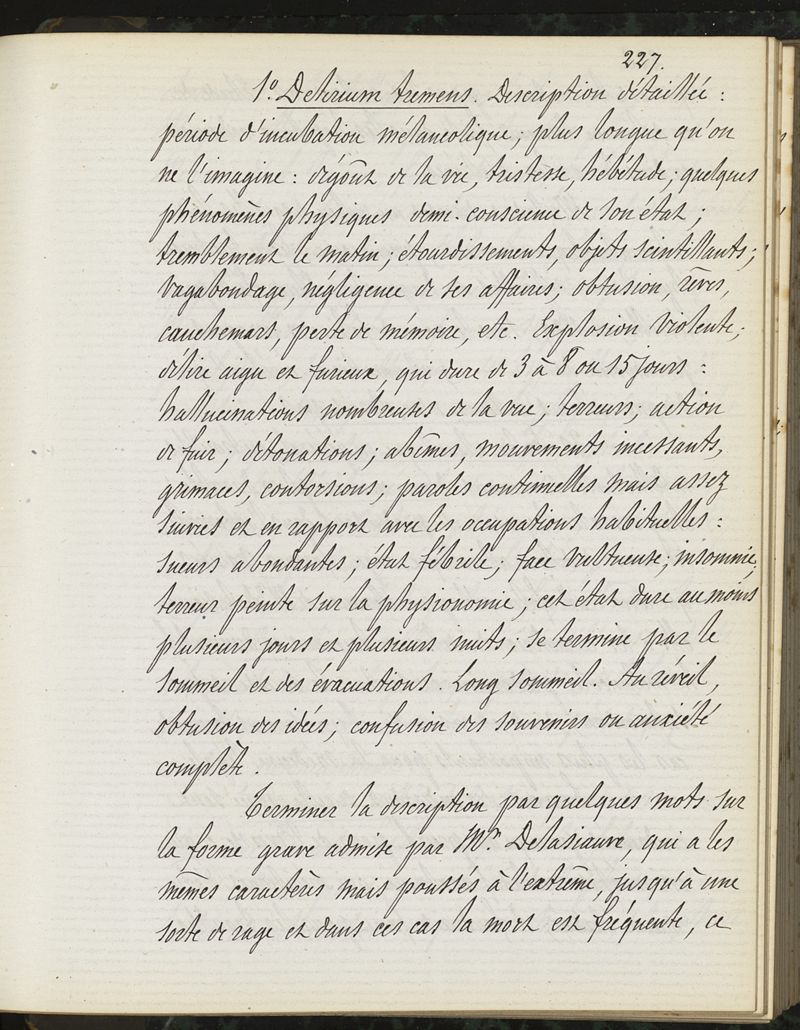 227.
1º Delirium tremens. Description détaillée :
période d'incubation mélancolique ; plus longue qu'on
ne l'imagine : dégoût de la vie, tristesse, hébétude ; quelques
phénomènes physiques demi-conscience de son état ;
tremblement le matin ; étourdissements, objets scintillants ;
vagabondage, négligence de ses affaires ; obtusion, rêves,
cauchemars, perte de mémoire, etc. Explosion violente ;
délire aigu et furieux, qui dure de 3 à 8 ou 15 jours :
hallucinations nombreuses de la vue ; terreurs ; action
de fuir ; détonations ; abîmes, mouvements incessants,
grimaces, contorsions ; paroles continuelles mais assez
suivies et en rapport avec les occupations habituelles :
sueurs abondantes ; état fébrile ; face vultueuse ; insomnie ;
terreur peinte sur la physionomie ; cet état dure au moins
plusieurs jours et plusieurs nuits ; se termine par le
sommeil et des évacuations. Long sommeil. Au réveil,
obtusion des idées ; confusion des souvenirs ou anxiété
complète.
Terminer la description par quelques mots sur
la forme grave admise par Mr. Delasiauve, qui a les
mêmes caractères mais poussés à l'extrême, jusqu'à une
sorte de rage et dans ces cas la mort est fréquente, ce